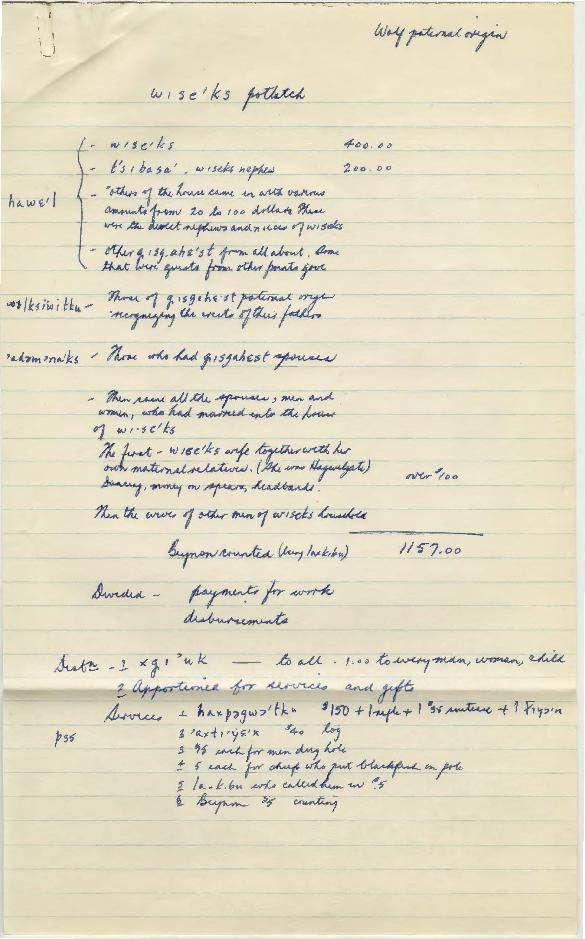 Wolf paternal origin
wise'ks potlatch
- wise'ks 400.00
- t'sibasa', wiseks nephew 200.00
hawe'l
- "others of the house came in with various
amounts from 20 to 100 dollars. These
were the direct nephews and nieces of wiseks
- other gisgahe'st from all about. Some
that were guests from other points gave
- Those of gisgahe'st paternal origin
recognizing the crests of their fathers
- Those who had gisgahest spouses
- Then came all the spouses, men and
women, who had married into the house
of wi·se'ks
The first - wise'ks wife together with her
own maternal relatives. (She was Hagwelgate)
Dancing, money on spears, headbands. over $100
Then the wives of other men of wiseks household
Beynon counted (being laxkibu) 1157.00
Divided - payments for work
disbursements
Distn - 1 xgi'uk — to all - 1.00 to every man, woman, child
2 Apportioned for services and gifts
Services 1 haxpagwɔ'tku $150 + 1 rifle + 1 $35 suitcase + 1
p35 2 $40 log
3 $5 each for men dug hole
4 5 each for chiefs who put blackfish on pole
5 laxkibu who called them in $5
6 Beynon $5 counting